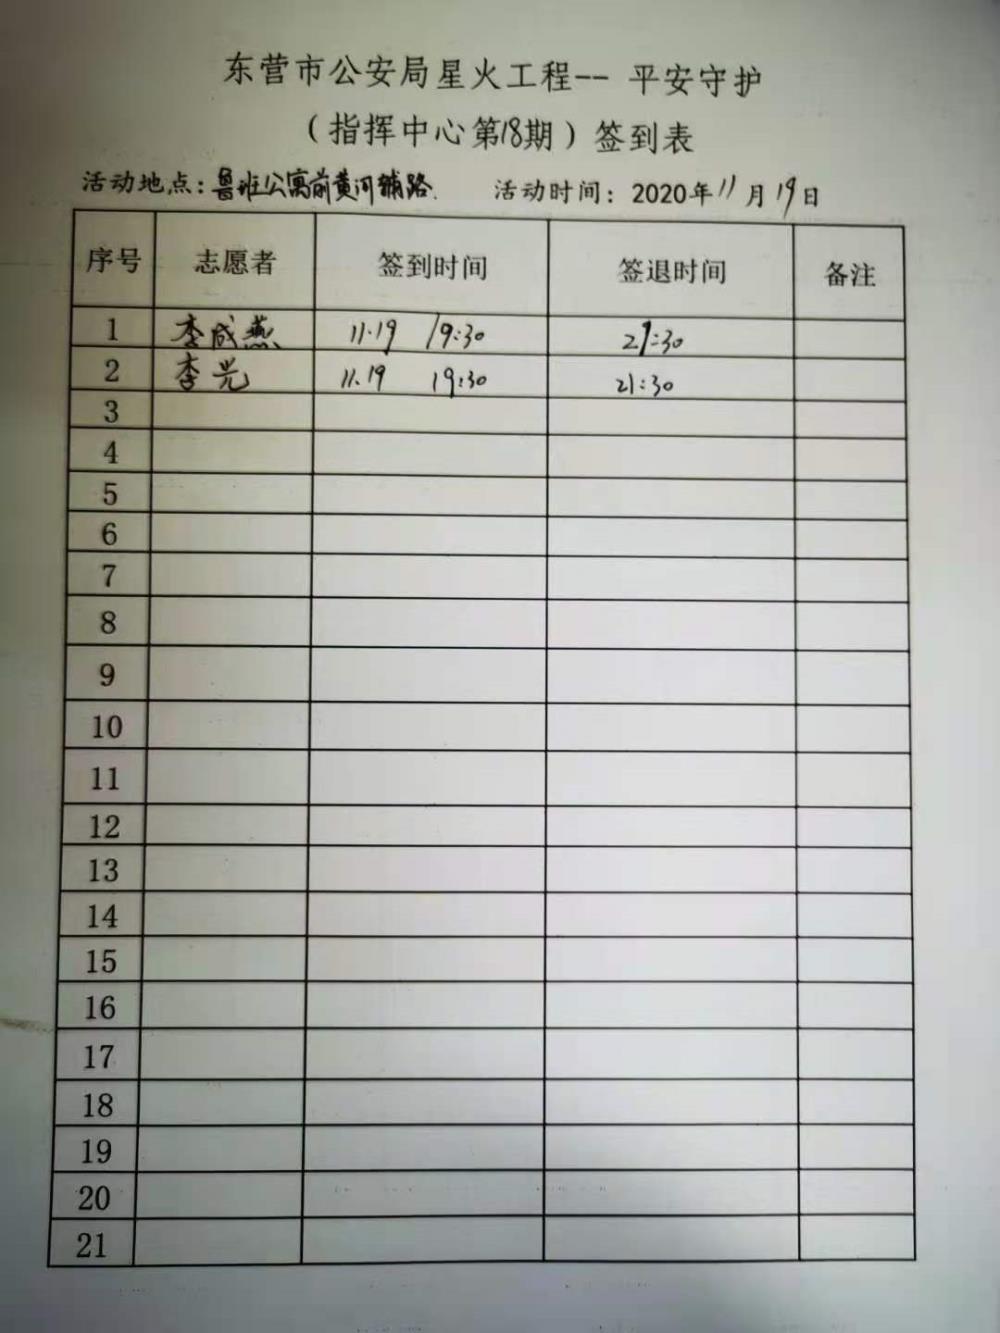 东营市公安局星火工程-- 平安守护
（指挥中心第18期）签到表
活动地点：鲁班公寓前黄河辅路. 活动时间：2020年11月19日
序号 志愿者 签到时间 签退时间 备注
1 李成燕 11.19 19:30 21:30
2 李光 11.19 19:30 21:30
3
4
5
6
7
8
9
10
11
12
13
14
15
16
17
18
19
20
21